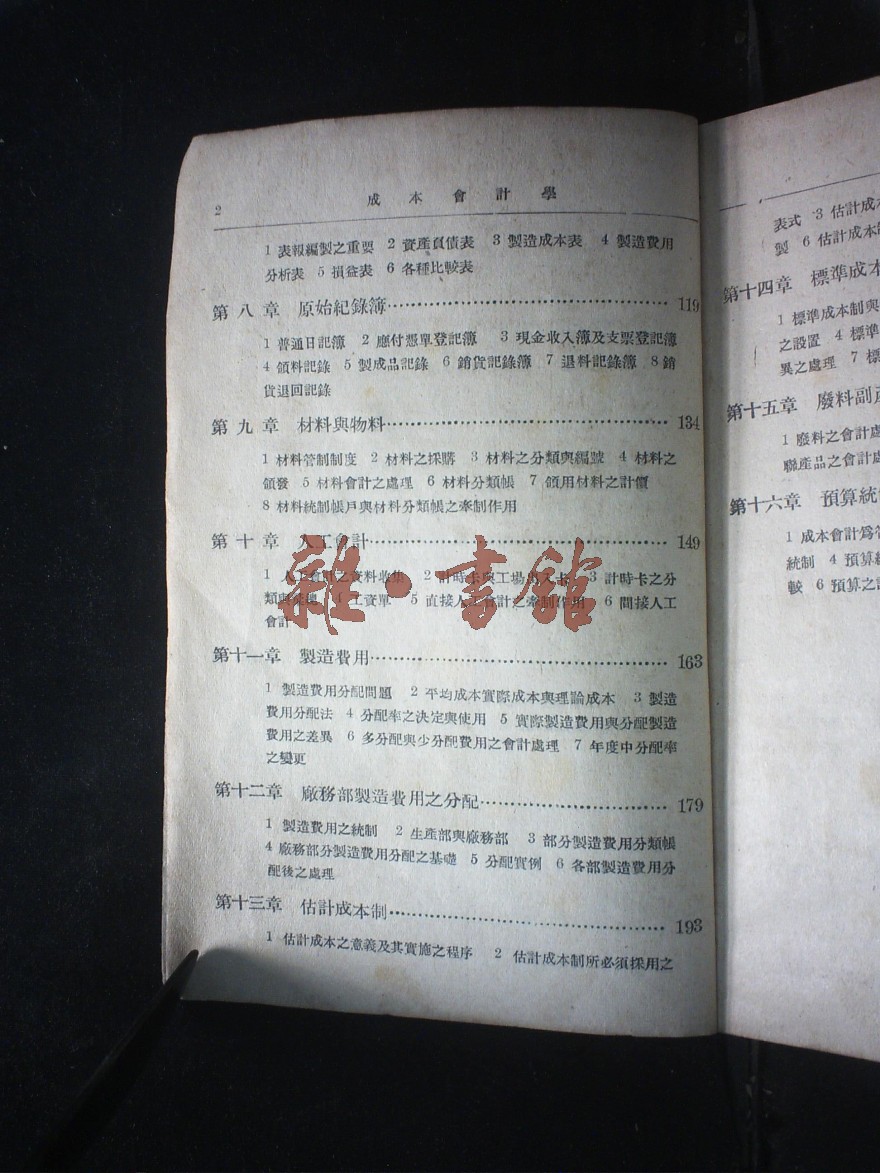 2
成本會計學
1 表報編製之重要 2 資產負債表 3 製造成本表 4 製造費用
分析表 5 損益表 6 各種比較表
第八章 原始紀錄簿 119
1 普通日記簿 2 應付憑單登記簿 3 現金收入簿及支票登記簿
4 領料記錄 5 製成品記錄 6 銷貨記錄簿 7 退料記錄簿 8 銷
貨退回記錄
第九章 材料與物料 134
1 材料管制制度 2 材料之採購 3 材料之分類與編號 4 材料之
領發 5 材料會計之處理 6 材料分類帳 7 領用材料之計價
8 材料統制帳戶與材料分類帳之牽制作用
第十章 人工會計 149
1 人工會計之資料收集 2 計時卡與工場出入卡 3 計時卡之分
類與彙總 4 工資單 5 直接人工會計之牽制作用 6 間接人工
會計
第十一章 製造費用 163
1 製造費用分配問題 2 平均成本實際成本與理論成本 3 製造
費用分配法 4 分配率之決定與使用 5 實際製造費用與分配製造
費用之差異 6 多分配與少分配費用之會計處理 7 年度中分配率
之變更
第十二章 廠務部製造費用之分配 179
1 製造費用之統制 2 生產部與廠務部 3 部分製造費用分類帳
4 廠務部分製造費用分配之基礎 5 分配實例 6 各部製造費用分
配後之處理
第十三章 估計成本制 193
1 估計成本之意義及其實施之程序 2 估計成本制所必須採用之
雜·書館
表式 3 估計成本
製 6 估計成本
第十四章 標準成本
1 標準成本制與
之設置 4 標準
異之處理 7 標
第十五章 廢料副產
1 廢料之會計處
聯產品之會計處
第十六章 預算統
1 成本會計爲管
統制 4 預算
較 6 預算之